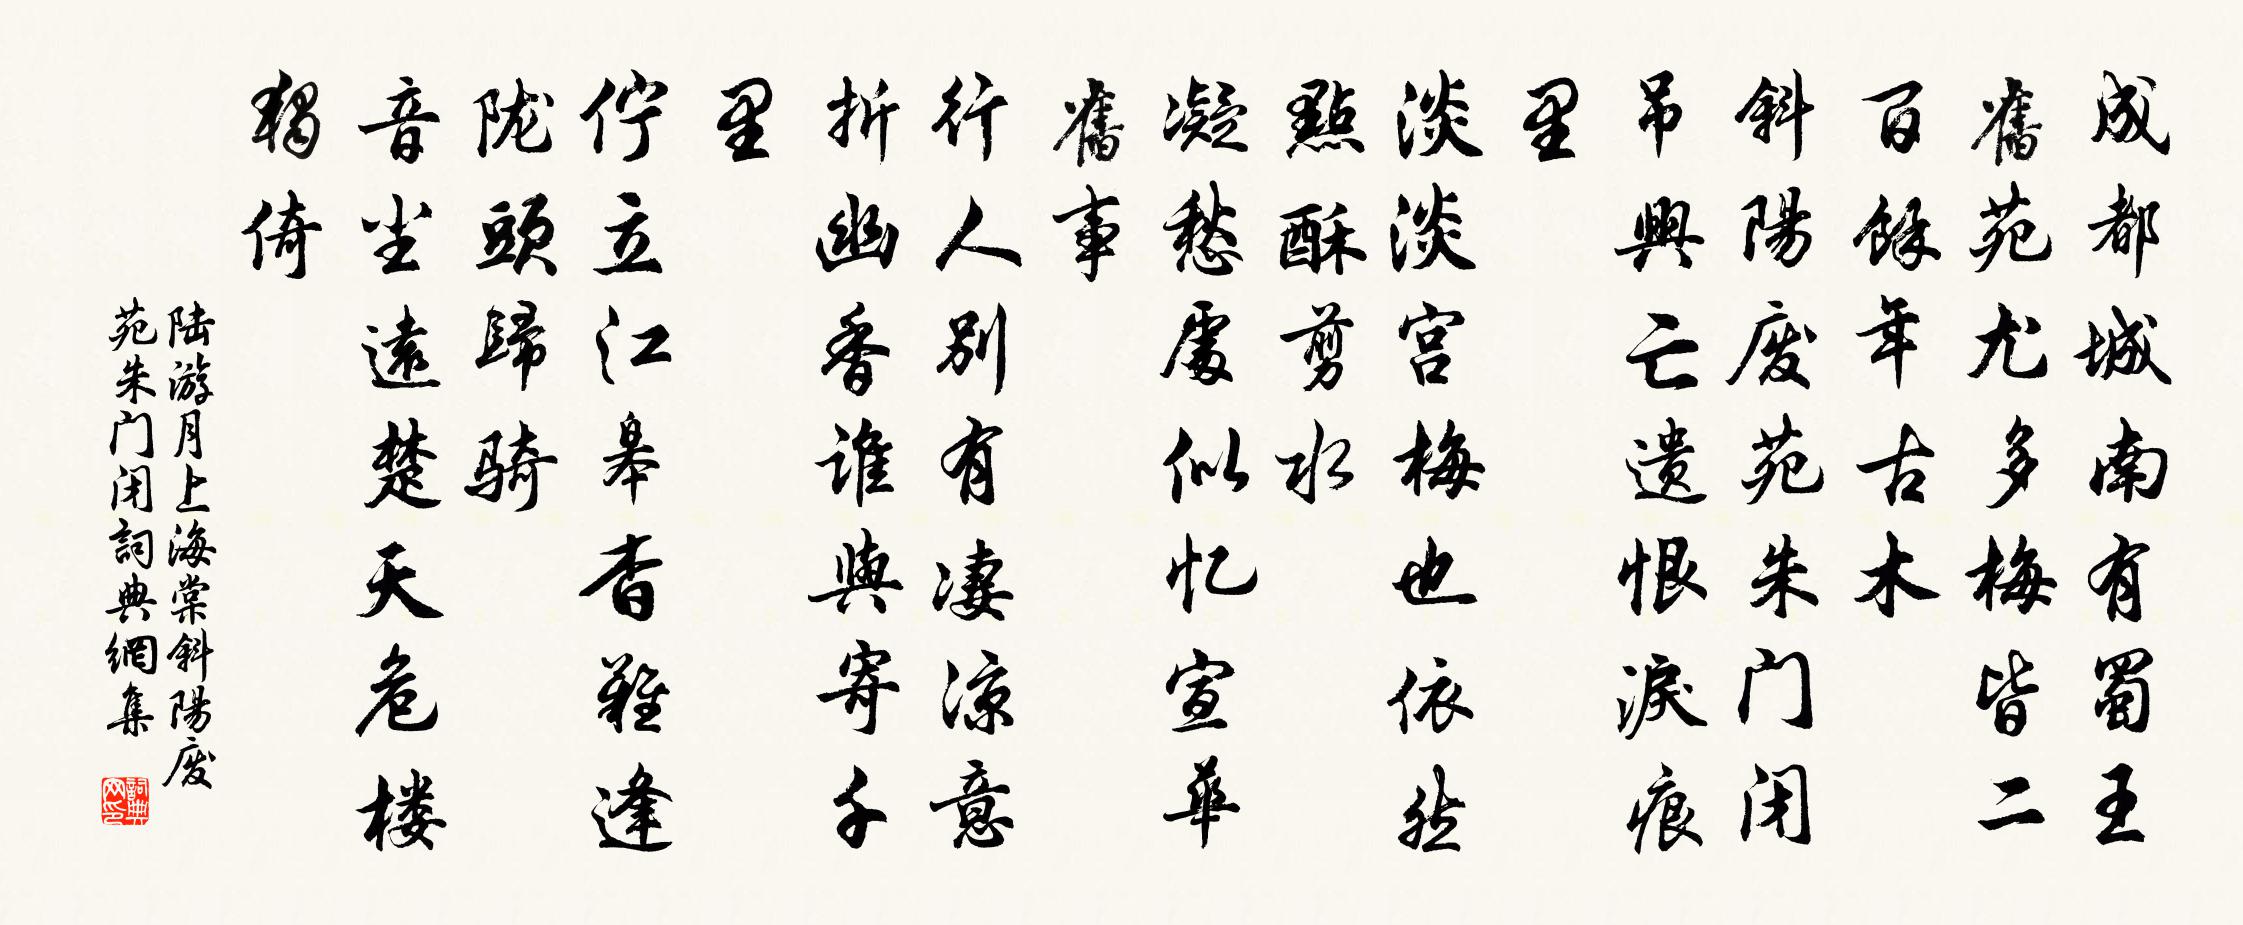 成都城南有蜀王
舊苑尤多梅皆二
百餘年古木
斜陽废苑朱门闭
吊興亡遗恨淚痕
里
淡淡宫梅也依然
點酥剪水
凝愁處似忆宣華
舊事
行人别有凄涼意
折幽香谁與寄千
里
伫立江皋杳難逢
陇頭歸骑
音尘遠楚天危楼
獨倚
陆游月上海棠斜陽废
苑朱门闭詞典網集
詞典
网印